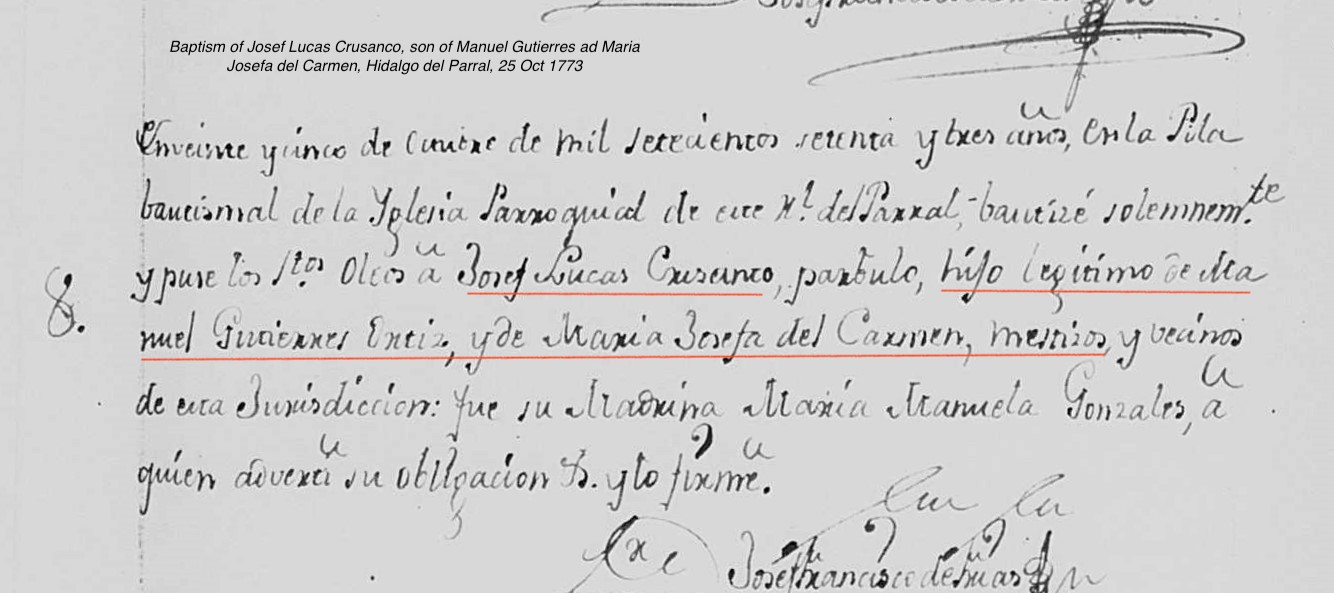 Baptism of Josef Lucas Crusanco, son of Manuel Gutierres ad Maria
Josefa del Carmen, Hidalgo del Parral, 25 Oct 1773
En veinte y cinco de Octubre de mil setecientos setenta y tres años, en la Pila
bautismal de la Yglesia Parroquial de este Rl. del Parral, bautizé solemnemte.
y puse los Stos. Oleos à Josef Lucas Crusanto, parbulo, hijo legitimo de Ma
nuel Gutierres Ortiz, y de Maria Josefa del Carmen, mestizos, y vecinos
8.
de esta Jurisdiccion: fue su Madrina Maria Manuela Gonzales, à
quien adverti su obligacion &. y lo firmé.
Josef Francisco de